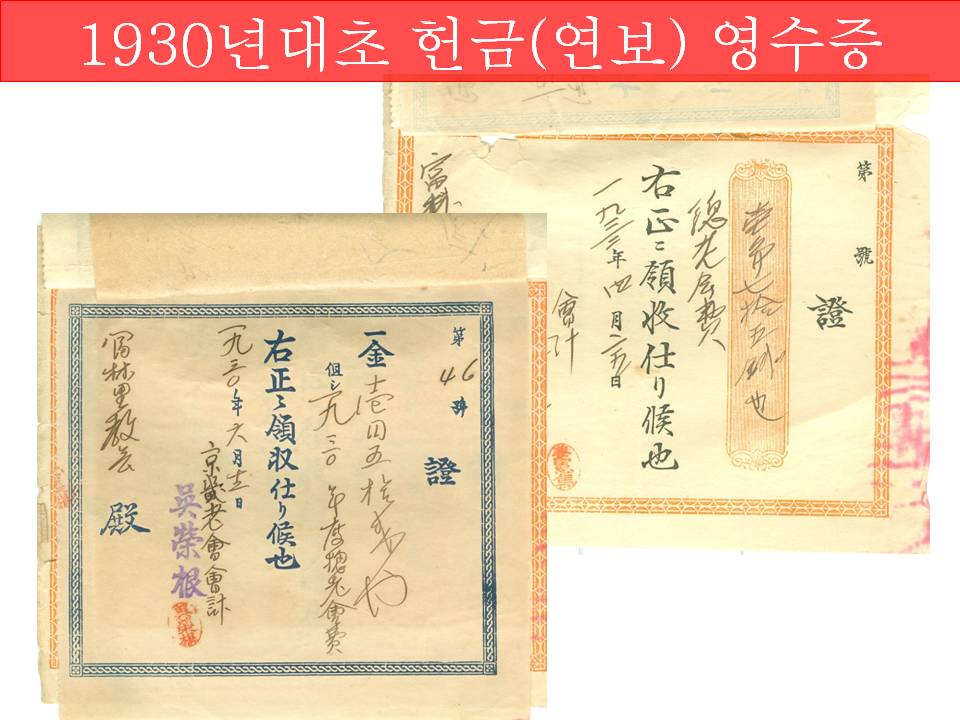 1930년대초 헌금(연보) 영수증
第 號
證
七拾五錢也
總老会費
右正ニ領收仕リ候也
一九三三年四月 日
會計
富
第 46 號
證
一金壱円五拾
但シ一九三〇年度總老會費
右正ニ領収仕リ候也
一九三〇年六月 日
老會會計
吳榮根
富林里教会
殿